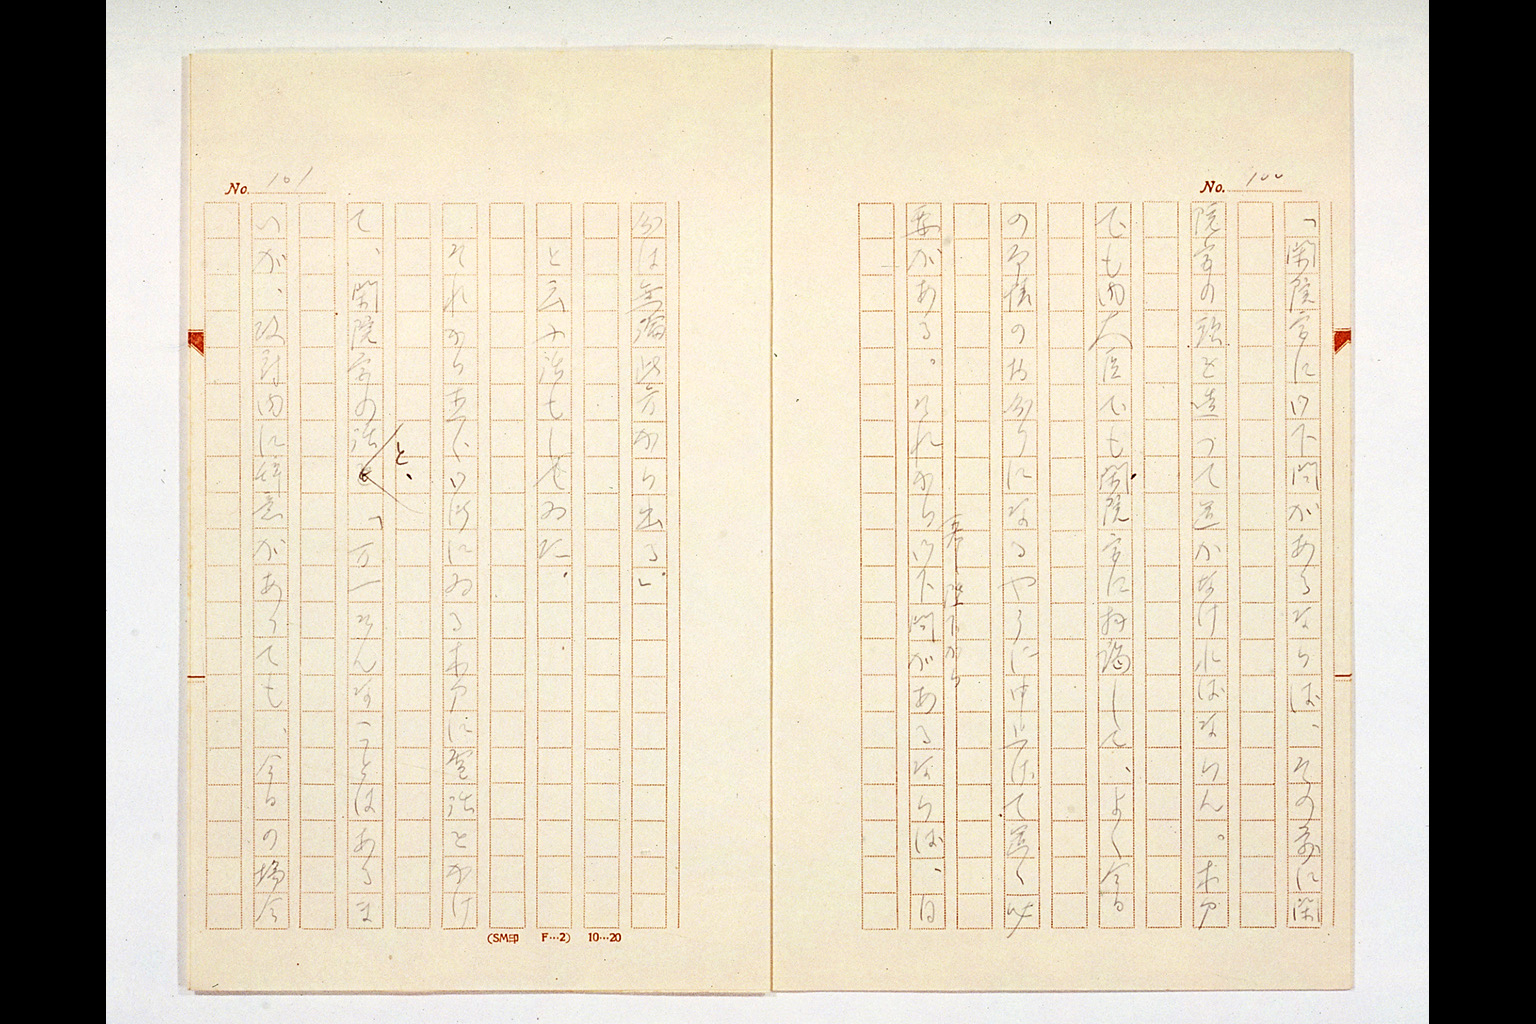 No. 100
「閑院宮に御下問があるならば、その前に閑
院宮の頭を造つて置かなければならん。木戸
でも内大臣でも閑院宮に拝謁して、よく今日
の事情のお分りになるやうに申上げて置く必
要がある。それから陛下から御下問があるならば、自
No. 101
分は無論此方から出る」
と云ふ話もしてゐた。
それから直ぐ御所にゐる木戸に電話をかけ
て、閑院宮の話と、「万一そんなことはあるま
いが、政府内に辞意があつても、今日の場合
(SM印 F…2) 10…20